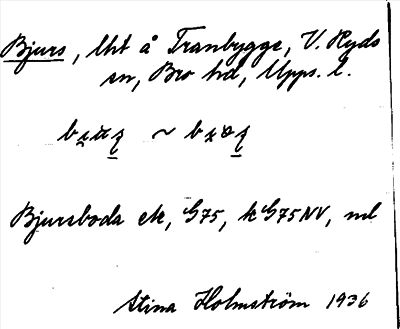 Bjurs, lht å Tranbygge, V. Ryds
sn, Bro hd, Upps. l.
Bjursboda ek, G75, k G75NV, nd
Stina Holmström 1936